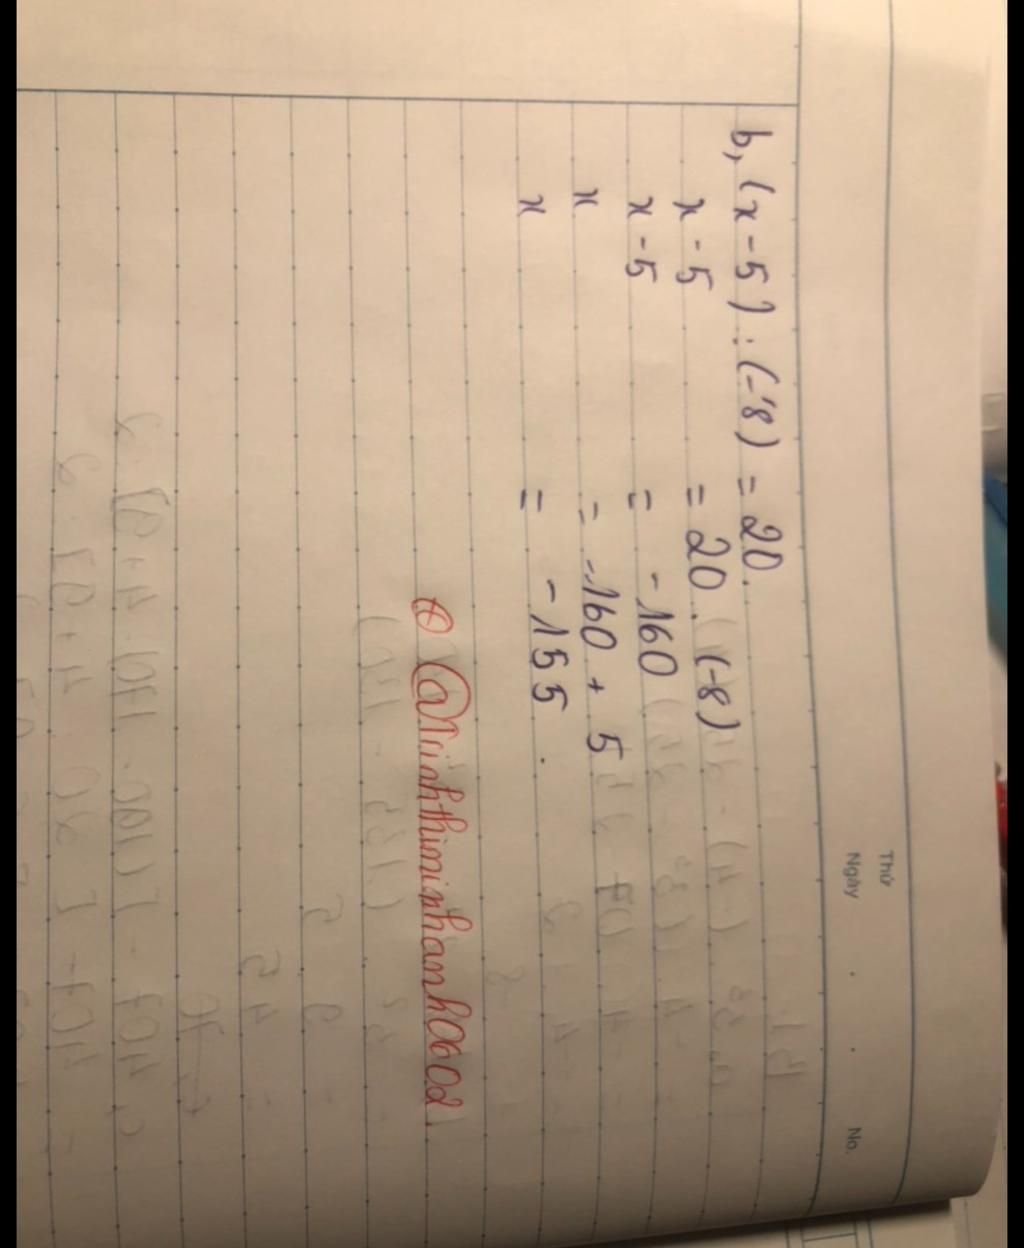 Thứ
Ngày . . No.
b, (x - 5) : (-8) = 20.
x - 5 = 20. (-8)
x - 5 = -160
x = -160 + 5
x = -155.
@Trinhthiminhanh0602.